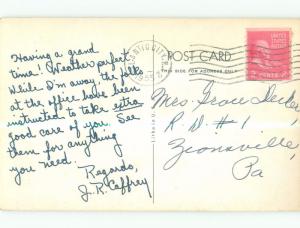 Having a grand
time! Weather perfect
While I'm away, the folks
at the office have been
instructed to take extra
good care of you. See
them for anything
you need.
Regards,
J. R. Caffrey
POST CARD
THIS SIDE FOR ADDRESS ONLY
UNITED STATES
POSTAGE
2 CENTS 2
Mrs. Grove
R. D. #1
Zionsville,
Pa